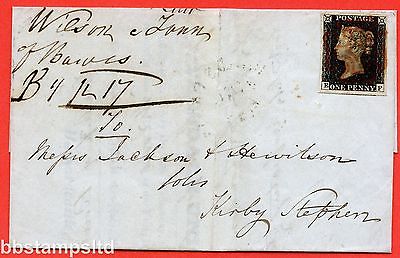 Wilson &
of Hawes.
By 12 17
To
Messrs Jackson & Hewitson
Solrs
Kirby Stephen
POSTAGE
E ONE PENNY F
bbstampsltd
bbstampsltd